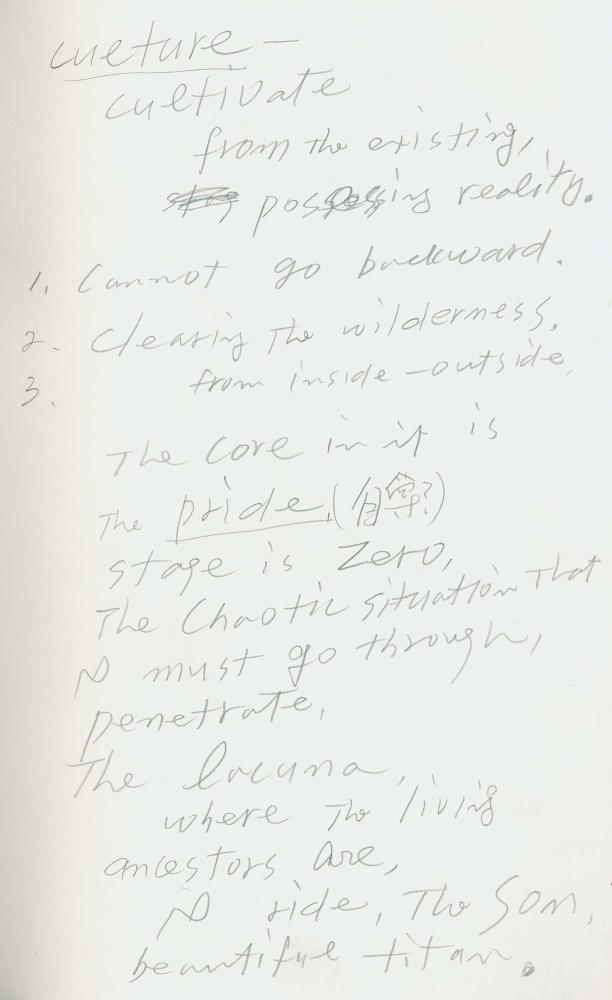 culture —
cultivate
from the existing,
possessing reality.
1. Cannot go backward.
2. Clearing the wilderness.
3. from inside - outside,
The core in it is
The pride, (自?)
stage is Zero,
The Chaotic situation That
must go through,
penetrate,
The lacuna,
where The living
ancestors are,
ride, The Son,
beautiful titan.